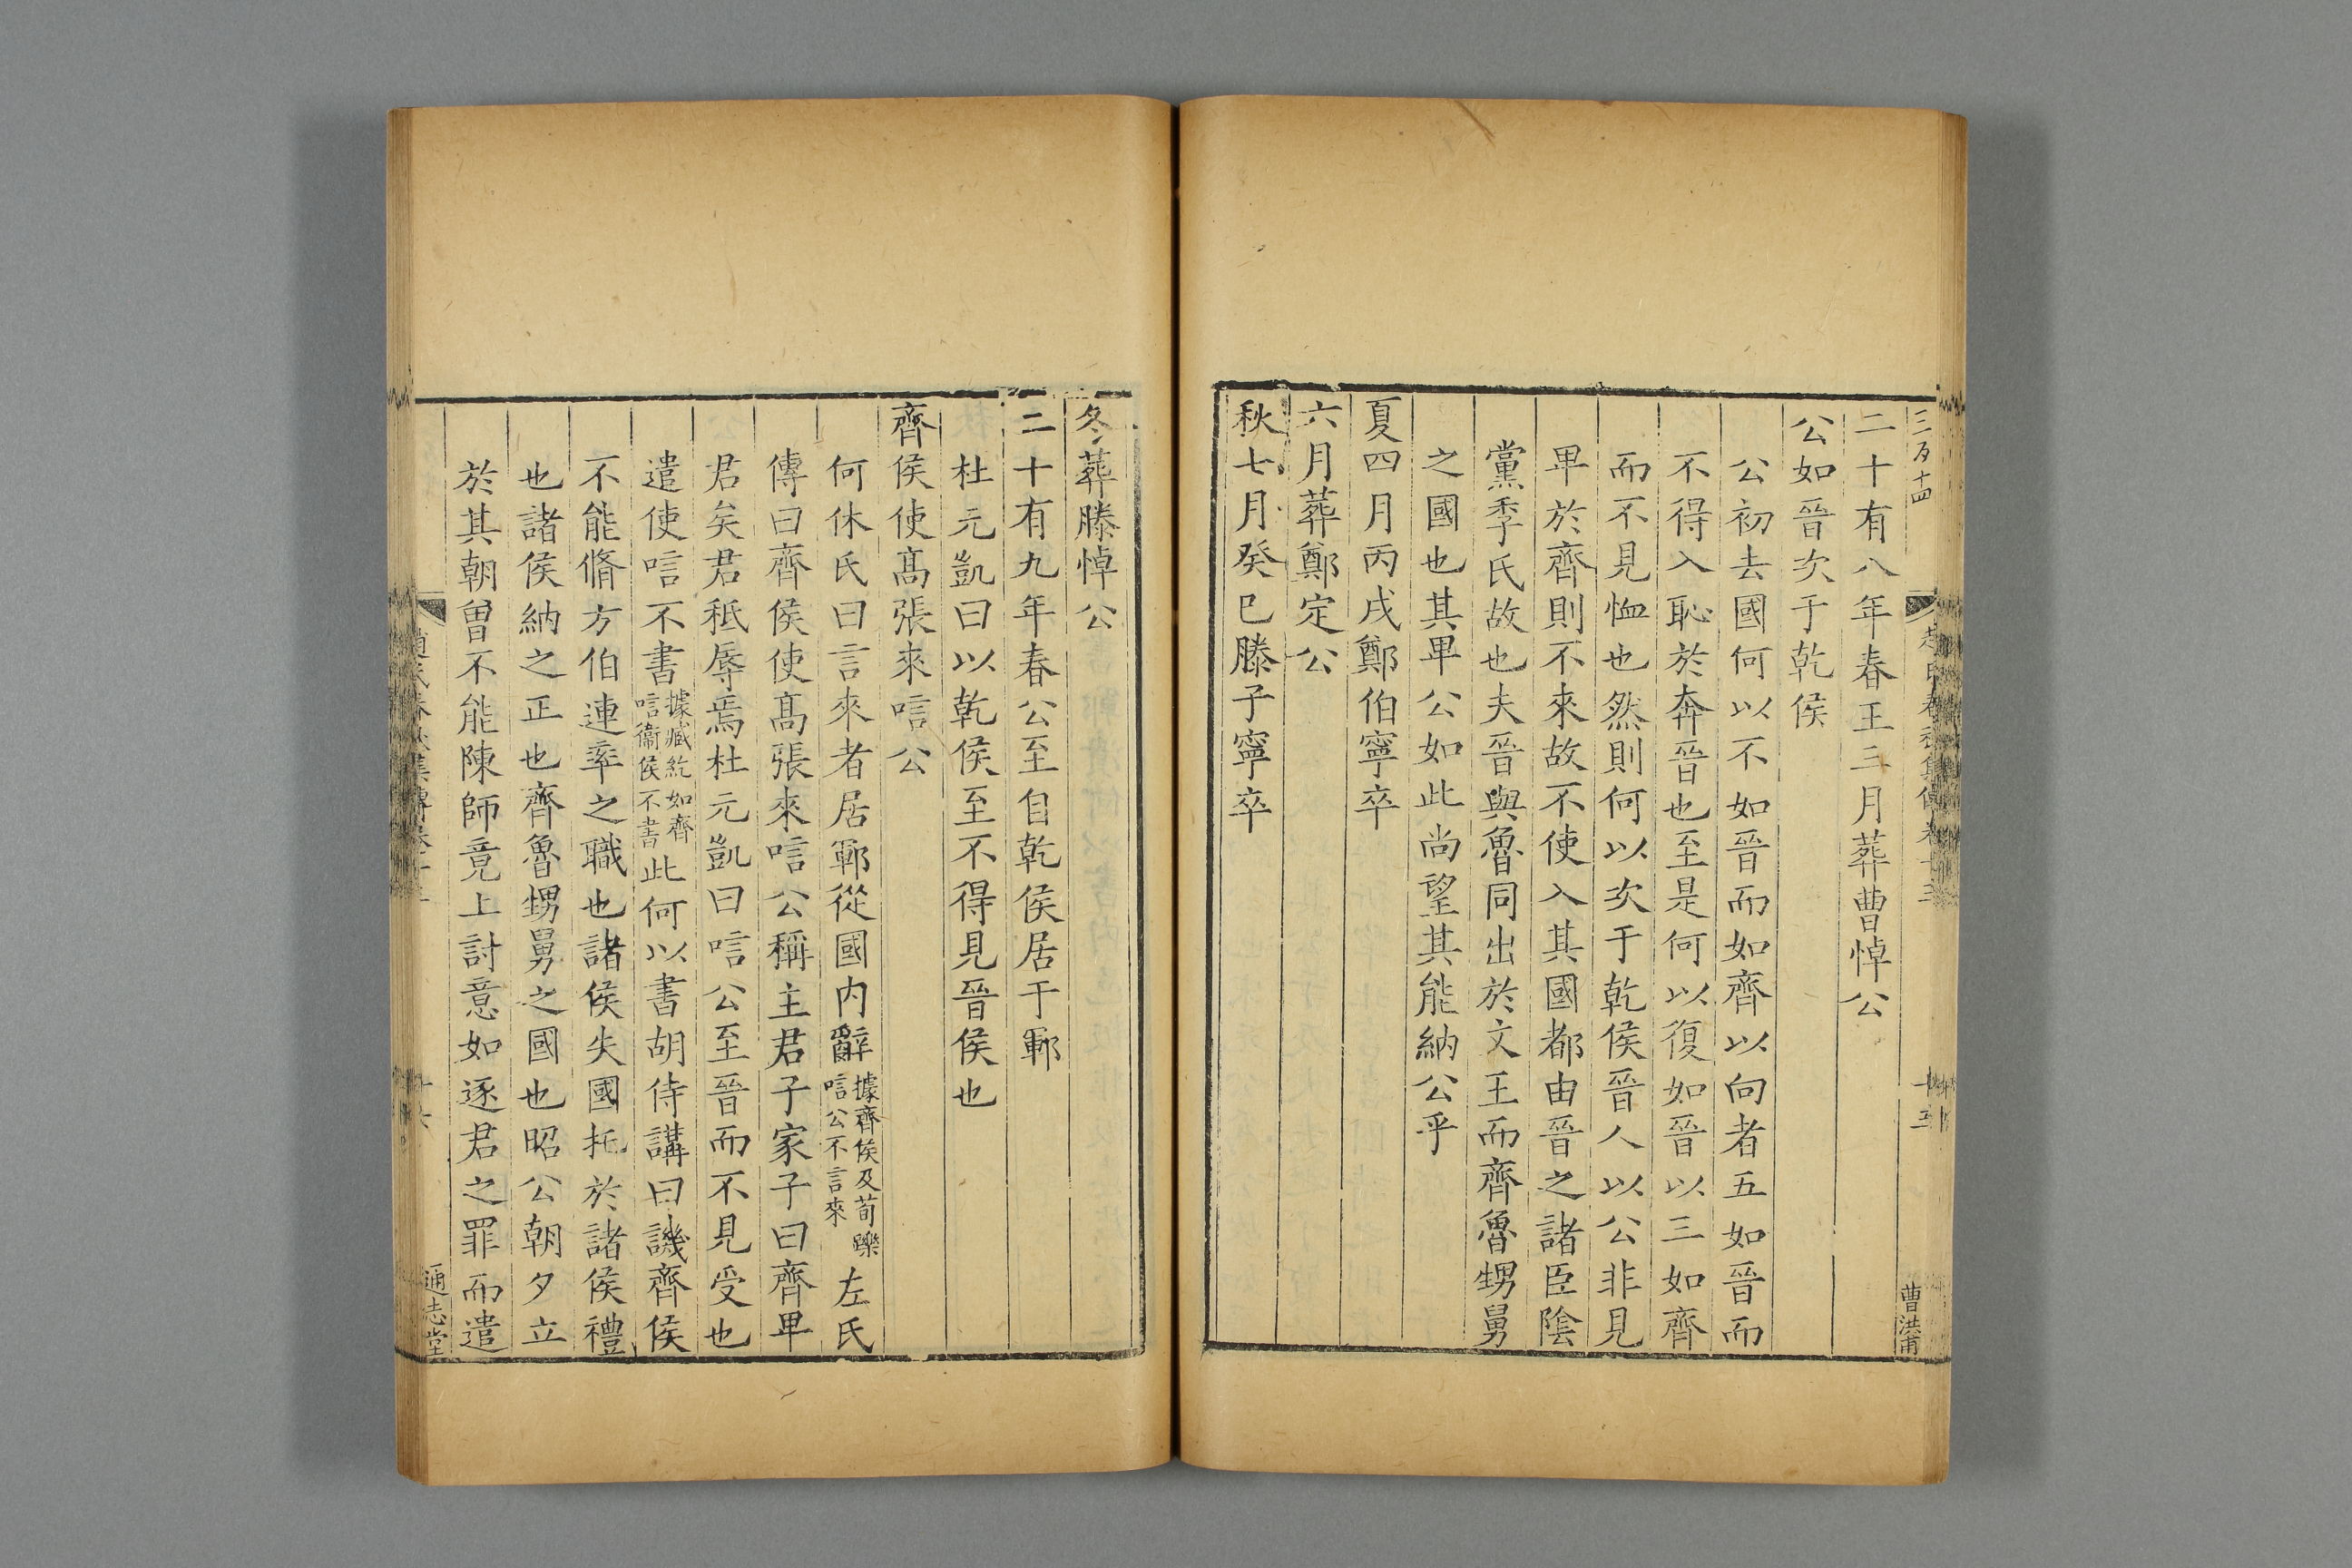 三百十四
二十有八年春王三月葬曹悼公
公如晉次于乾侯
公初去國何以不如晉而如齊以向者五如晉而
不得入恥於奔晉也至是何以復如晉以三如齊
而不見恤也然則何以次于乾侯晉人以公非見
畢於齊則不來故不使入其國都由晉之諸臣陰
黨季氏故也夫晉與魯同出於文王而齊魯甥舅
之國也其畢公如此尚望其能納公乎
夏四月丙戌鄭伯寧卒
六月葬鄭定公
秋七月癸巳滕子寧卒
曹洪甫
冬葬滕悼公
二十有九年春公至自乾侯居于鄆
杜元凱曰以乾侯至不得見晉侯也
齊侯使高張來唁公
何休氏曰言來者居鄆從國內辭據齊侯及荀躒唁公不言來左氏
傳曰齊侯使高張來唁公稱主君子家子曰齊卑
君矣君秖辱焉杜元凱曰唁公至晉而不見受也
遣使唁不書據臧紇如齊唁衛侯不書此何以書胡侍講曰譏齊侯
不能脩方伯連率之職也諸侯失國托於諸侯禮
也諸侯納之正也齊魯甥舅之國也昭公朝夕立
於其朝曾不能陳師竟上討意如逐君之罪而遣
通志堂